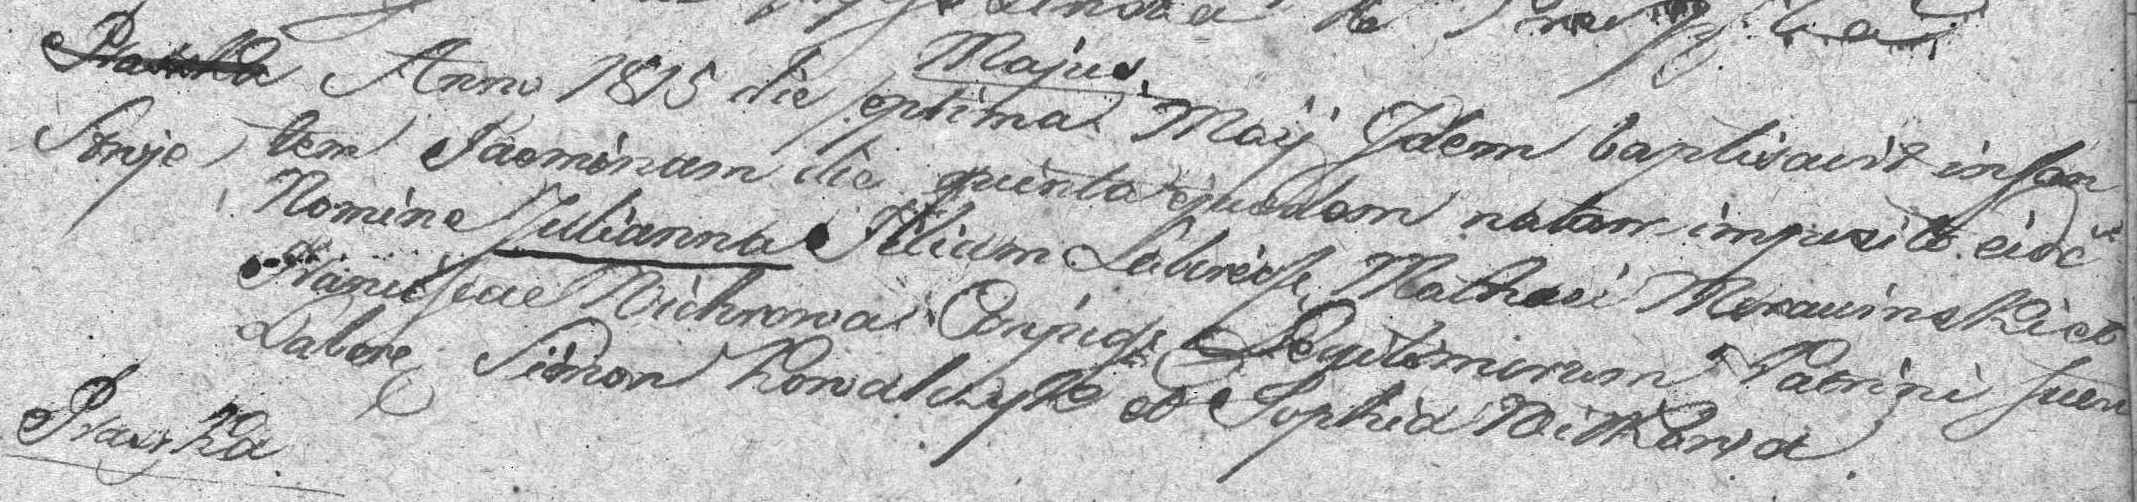 Majus
Praszka Anno 1815 die septima Maij Idem baptisavit infan
Stroje, tem Faeminam die quinta ejusdem natam imposito eiq
Nomine Julianna Filiam Laboriosi Mathaei Morawinski et
Wichrowa Conjugu Legitimorum Patrini fuere
Labore Simon Kowalczyk et Sophia Witkowa.
Praszka